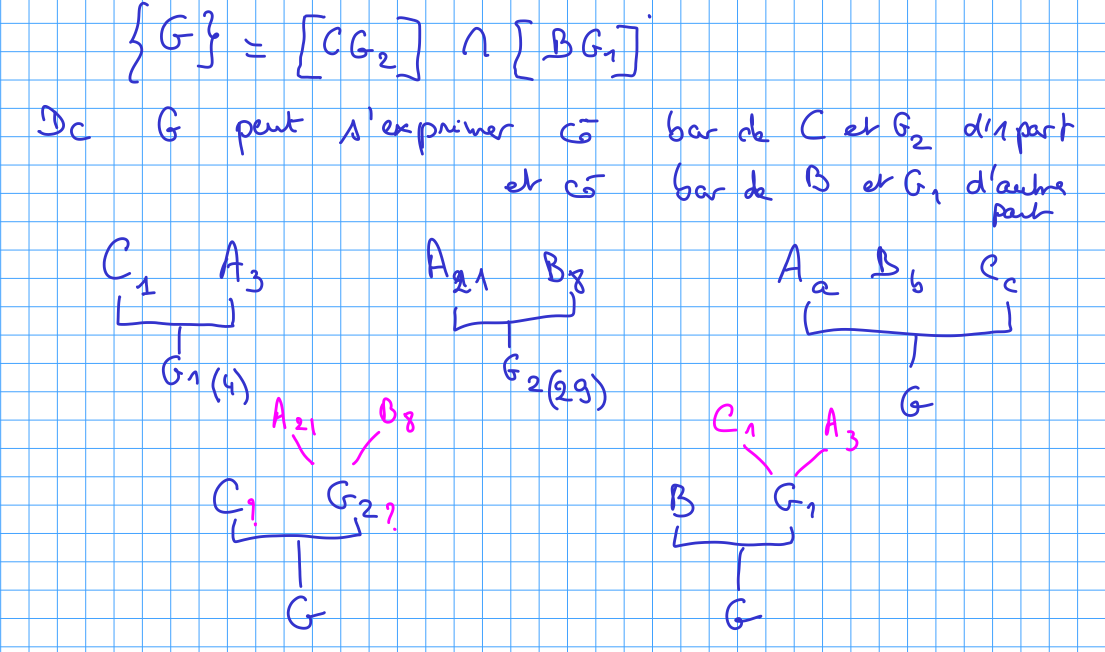 {G} = [CG₂] ∩ [BG₁]
Dc G peut s'exprimer cō bar de C et G₂ d'1 part
et cō bar de B et G₁ d'autre part
C₁ A₃ A₂₁ B₈ A_a B_b C_c
G₁(4) G₂(29) G
A₂₁ B₈ C₁ A₃
C? G₂? B G₁
G G